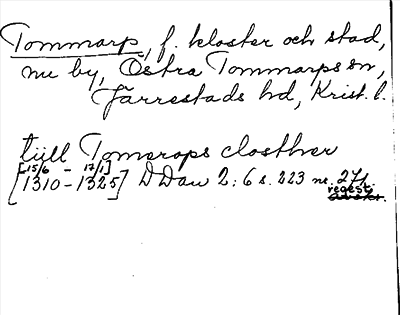 Tommarp, f. kloster och stad,
nu by, Östra Tommarps sn,
Järrestads hd, Krist. l.
tiill Tomerops closther
[15/6 - 17/1]
[1310-1325] DDan 2:6 s. 223 nr. 271.
regest